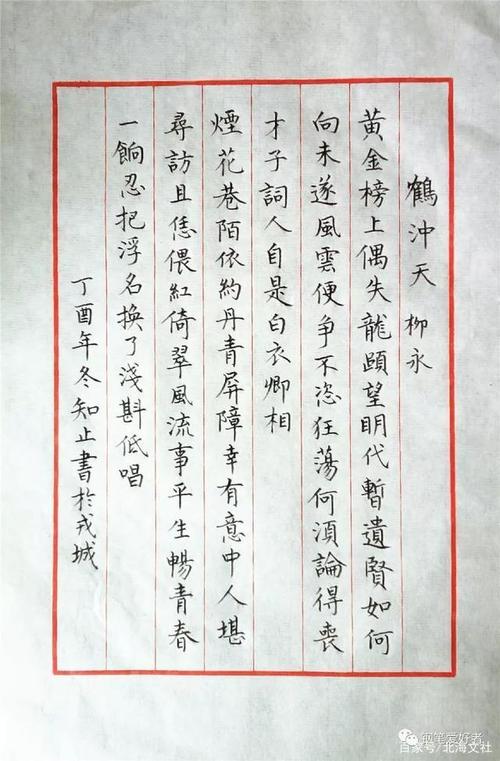 鶴沖天 柳永
黃金榜上偶失龍頭望明代暫遺賢如何
向未遂風雲便争不恣狂蕩何湏論得喪
才子詞人自是白衣卿相
煙花巷陌依約丹青屏障幸有意中人堪
尋訪且恁偎紅倚翠風流事平生暢青春
一餉忍把浮名換了淺斟低唱
丁酉年冬知止書於戎城
钢笔爱好者
百家号/北海文社